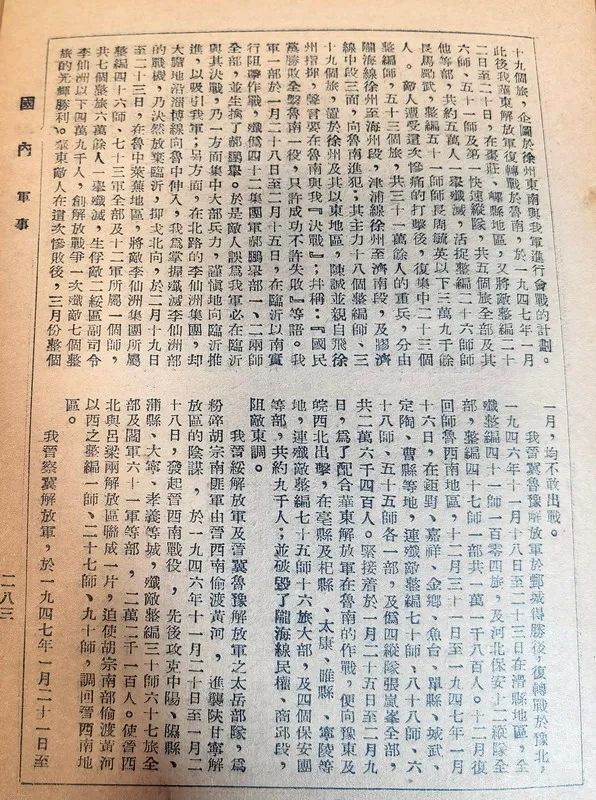 十九個旅，企圖於徐州東南與我軍進行會戰的計劃。
此後我華東解放軍復轉戰於魯南，於一九四七年一月
二日至二十日，在棗莊、嶧縣地區，又將敵整編二十
六師、五十一師及第一快速縱隊，共五個旅全部及其
他等部，共約五萬人一舉殲滅，活捉整編二十六師師
長馬勵武，整編五十一師師長周毓英以下三萬九千餘
人。敵人遭受這次慘痛的打擊後，復集中二十三個
整編師，五十三個旅，共三十一萬餘人的重兵，分由
隴海線徐州至海州段，津浦線徐州至濟南段，及膠濟
線中段三面，向魯南進犯；其主力十八個整編師、三
十九個旅，置於徐州及其以東地區，陳誠並親自飛徐
州指揮，聲言要在魯南與我『決戰』；并稱：『國民
黨勝敗全繫魯南一役，只許成功不許失敗』等語。我
軍一部於一月二十八日至二月十五日，在臨沂以南實
行阻擊作戰，殲僞四十二集團軍郝鵬舉部一、二兩師
全部，並生擒了郝鵬舉。於是敵人誤爲我軍必在臨沂
與其決戰，乃一方面集中大部兵力，謹慎地向臨沂推
進，以吸引我軍；另方面，在北路的李仙洲集團，却
大膽地沿淄博線向魯中伸入，我爲掌握殲滅李仙洲部
的戰機，乃決然放棄臨沂，抑戈北向，於二月十九日
至二十三日，在魯中萊蕪地區，將敵李仙洲集團所屬
整編四十六師、七十三軍全部及十二軍所屬一個師，
共七個整旅六萬餘人一舉殲滅，生俘敵二綏區副司令
李仙洲以下四萬九千人，創解放戰爭一次殲敵七個整
旅的光輝勝利。華東敵人在這次慘敗後，三月份整個
一月，均不敢出戰。
我晉冀魯豫解放軍於鄄城得勝後，復轉戰於豫北，
一九四六年十一月十八日至二十三日在滑縣地區，全
殲整編四十一師一百零四旅，及河北保安十二縱隊全
部，整編四十七師一部共一萬一千八百人。十二月復
回師魯西南地區，十二月三十一日至一九四七年一月
十六日，在鉅野、嘉祥、金鄉、魚台、單縣、城武、
定陶、曹縣等地，連殲敵整編七十師、八十八師、六
十八師、五十五師各一部，及僞四縱隊張嵐峯全部，
共二萬六千四百人。緊接着於一月二十五日至二月九
日，爲了配合華東解放軍在魯南的作戰，便向豫東及
皖西北出擊，在亳縣及杞縣、太康、睢縣、寧陵等
地，連殲敵整編七十五師十六旅大部，及四個保安團
等部，共約九千人；並破毀了隴海線民權、商邱段，
阻敵東調。
我晉綏解放軍及晉冀魯豫解放軍之太岳部隊，爲
粉碎胡宗南匪軍由晉西南偷渡黃河，進襲陝甘寧解
放區的陰謀，於一九四六年十一月二十日至一月二
十八日，發起晉西南戰役，先後攻克中陽、隰縣、
蒲縣、大寧、孝義等城，殲敵整編三十師六十七旅全
部及閻軍六十一軍等部，二萬二千一百人。使晉西
北與呂梁兩解放區聯成一片，迫使胡宗南部偷渡黃河
以西之整編一師、二十七師、九十師，調回晉西南地
區。
我晉察冀解放軍，於一九四七年一月二十一日至
國內軍事
二八三